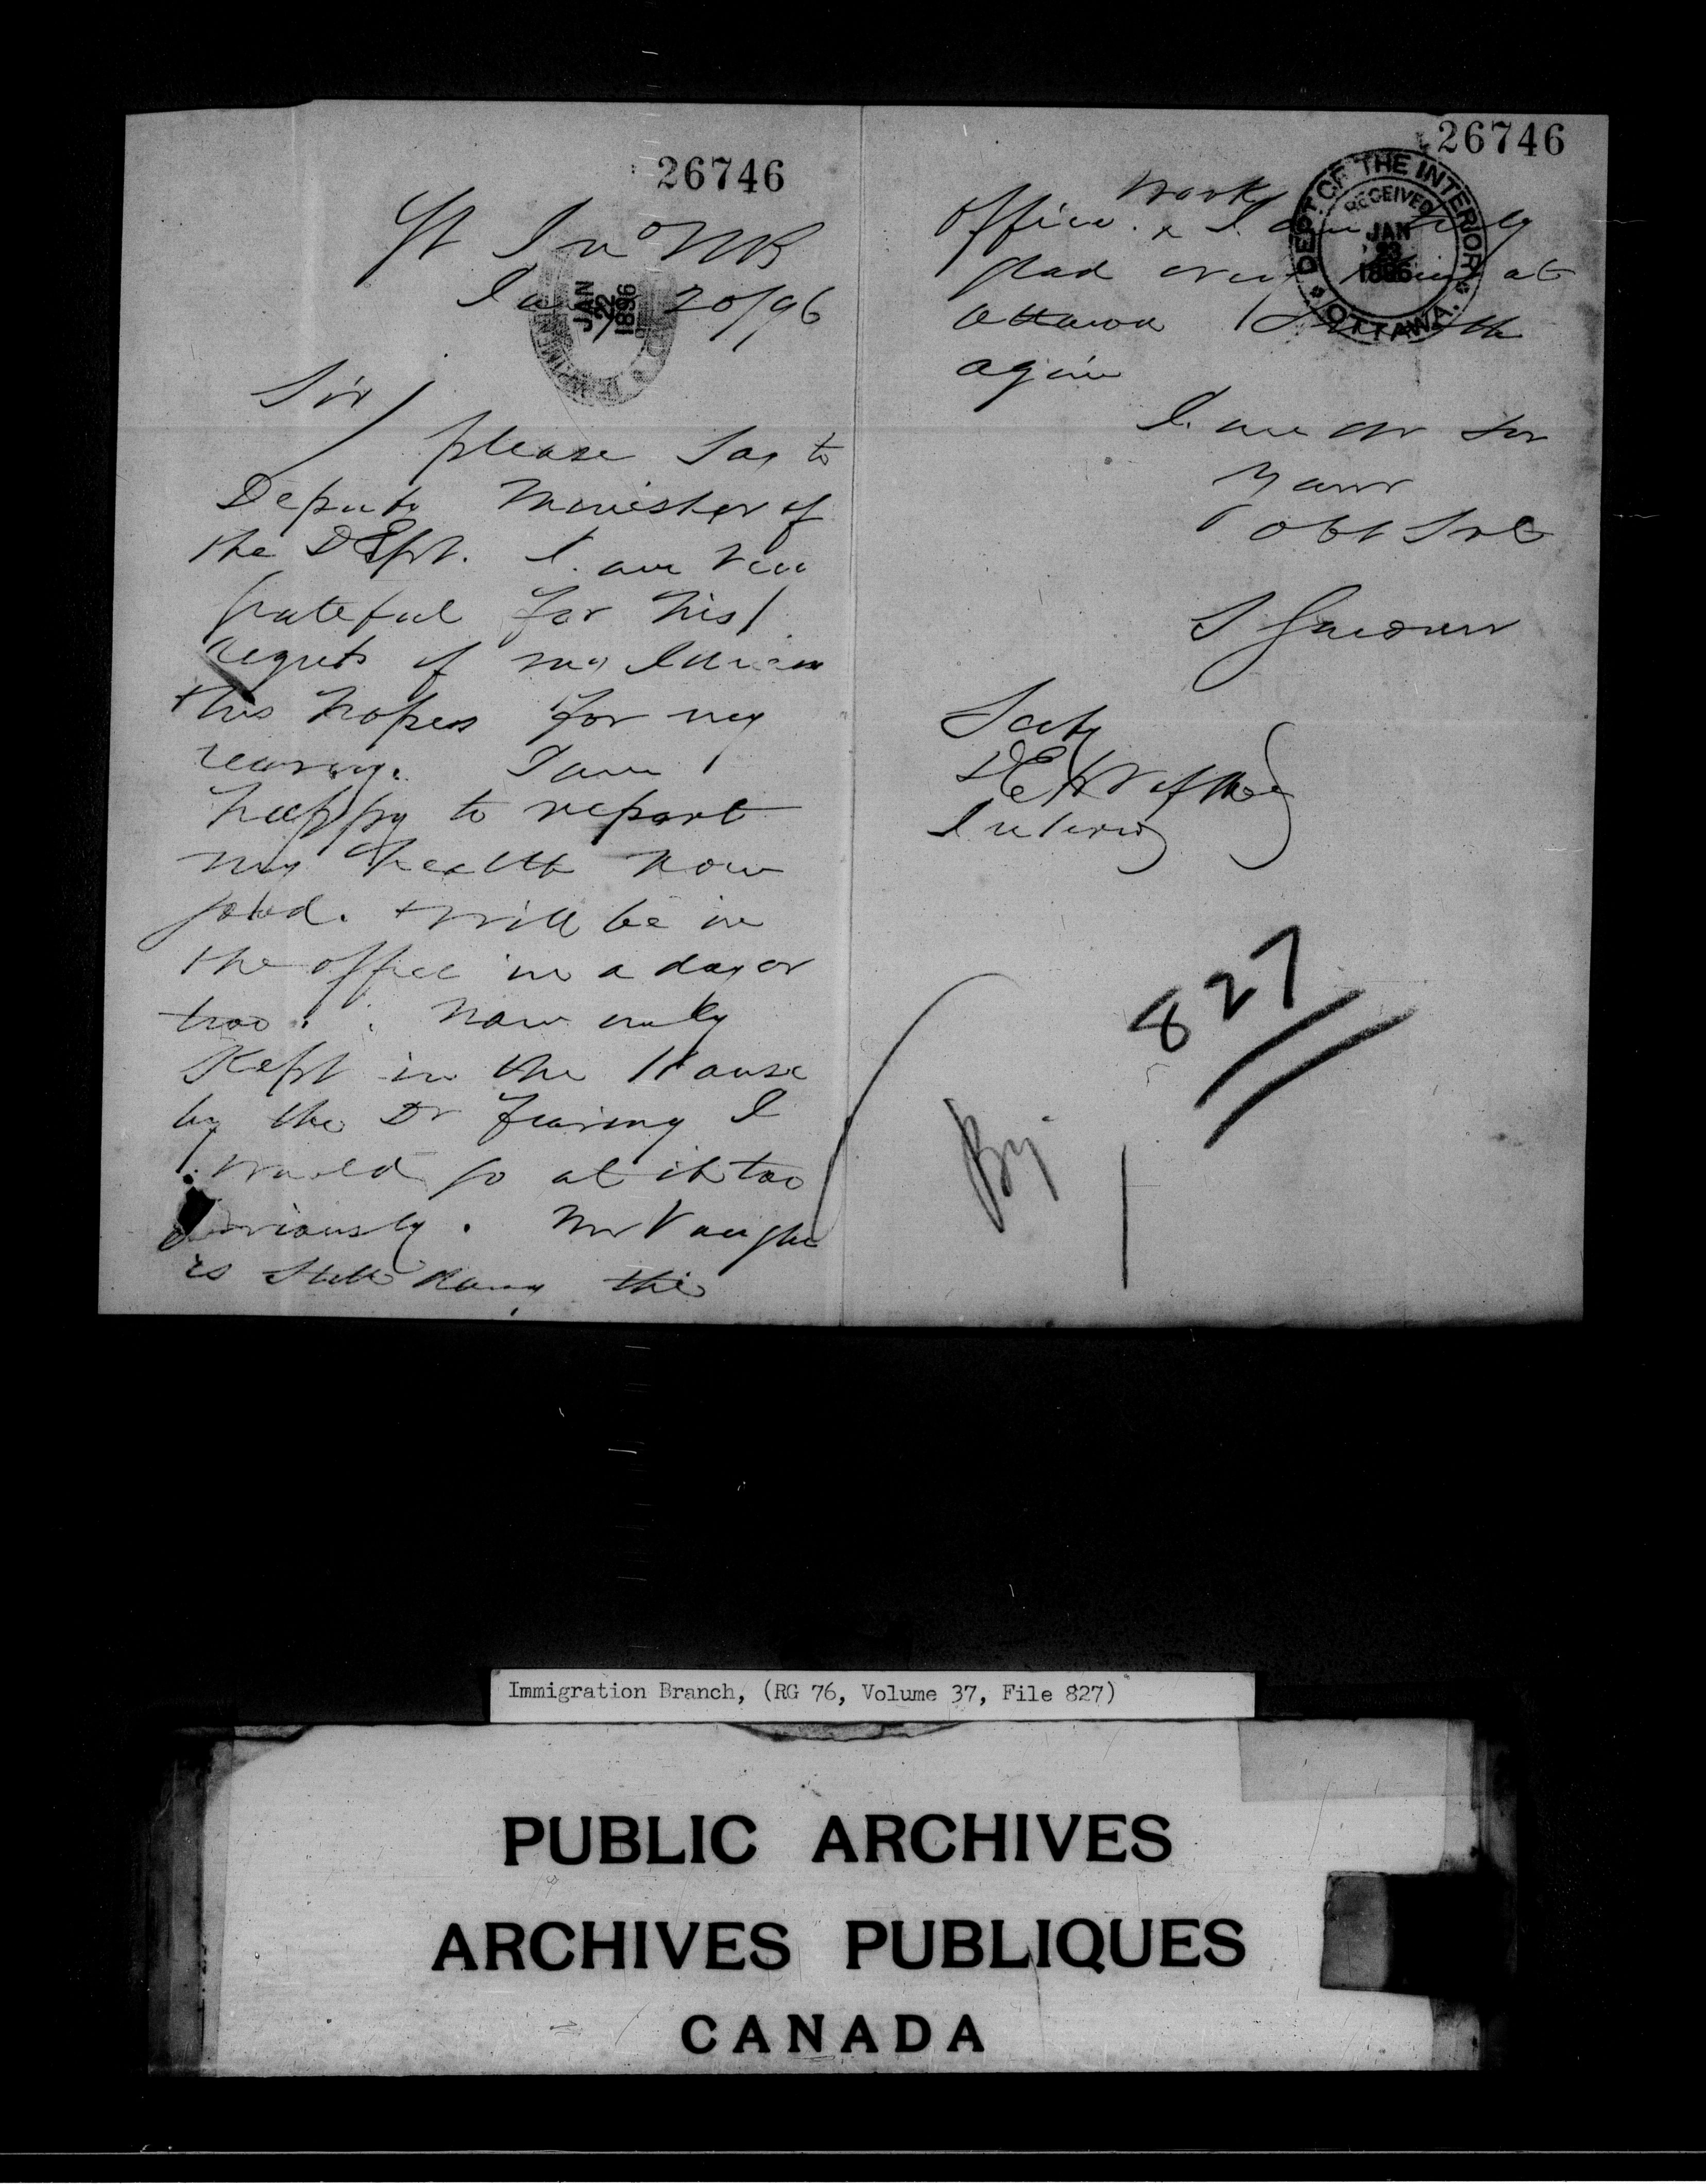 26746
St Jno NB
Jan 20/96
JAN
22
1896
Sir/
please say to
Deputy Minister of
the DEpt. I am very
grateful for his
regrets of my illness
& his hopes for my
recovery. I am
happy to report
my health now
good. & will be in
the office in a day or
two. now only
Kept in the House
by the Dr fearing I
would go at it too
seriously. Mr Vaughn
is still doing the
26746
DEPT OF THE INTERIOR
RECEIVED
JAN
23
1896
OTTAWA
office work & I am truly
glad at
Ottawa
again
I am Dr Sir
Yours
obt Svt
S Gardner
Secty
DEpt of the
Interior
827
By
Immigration Branch, (RG 76, Volume 37, File 827)
PUBLIC ARCHIVES
ARCHIVES PUBLIQUES
CANADA